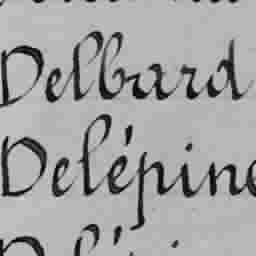 Delbard
Delépine